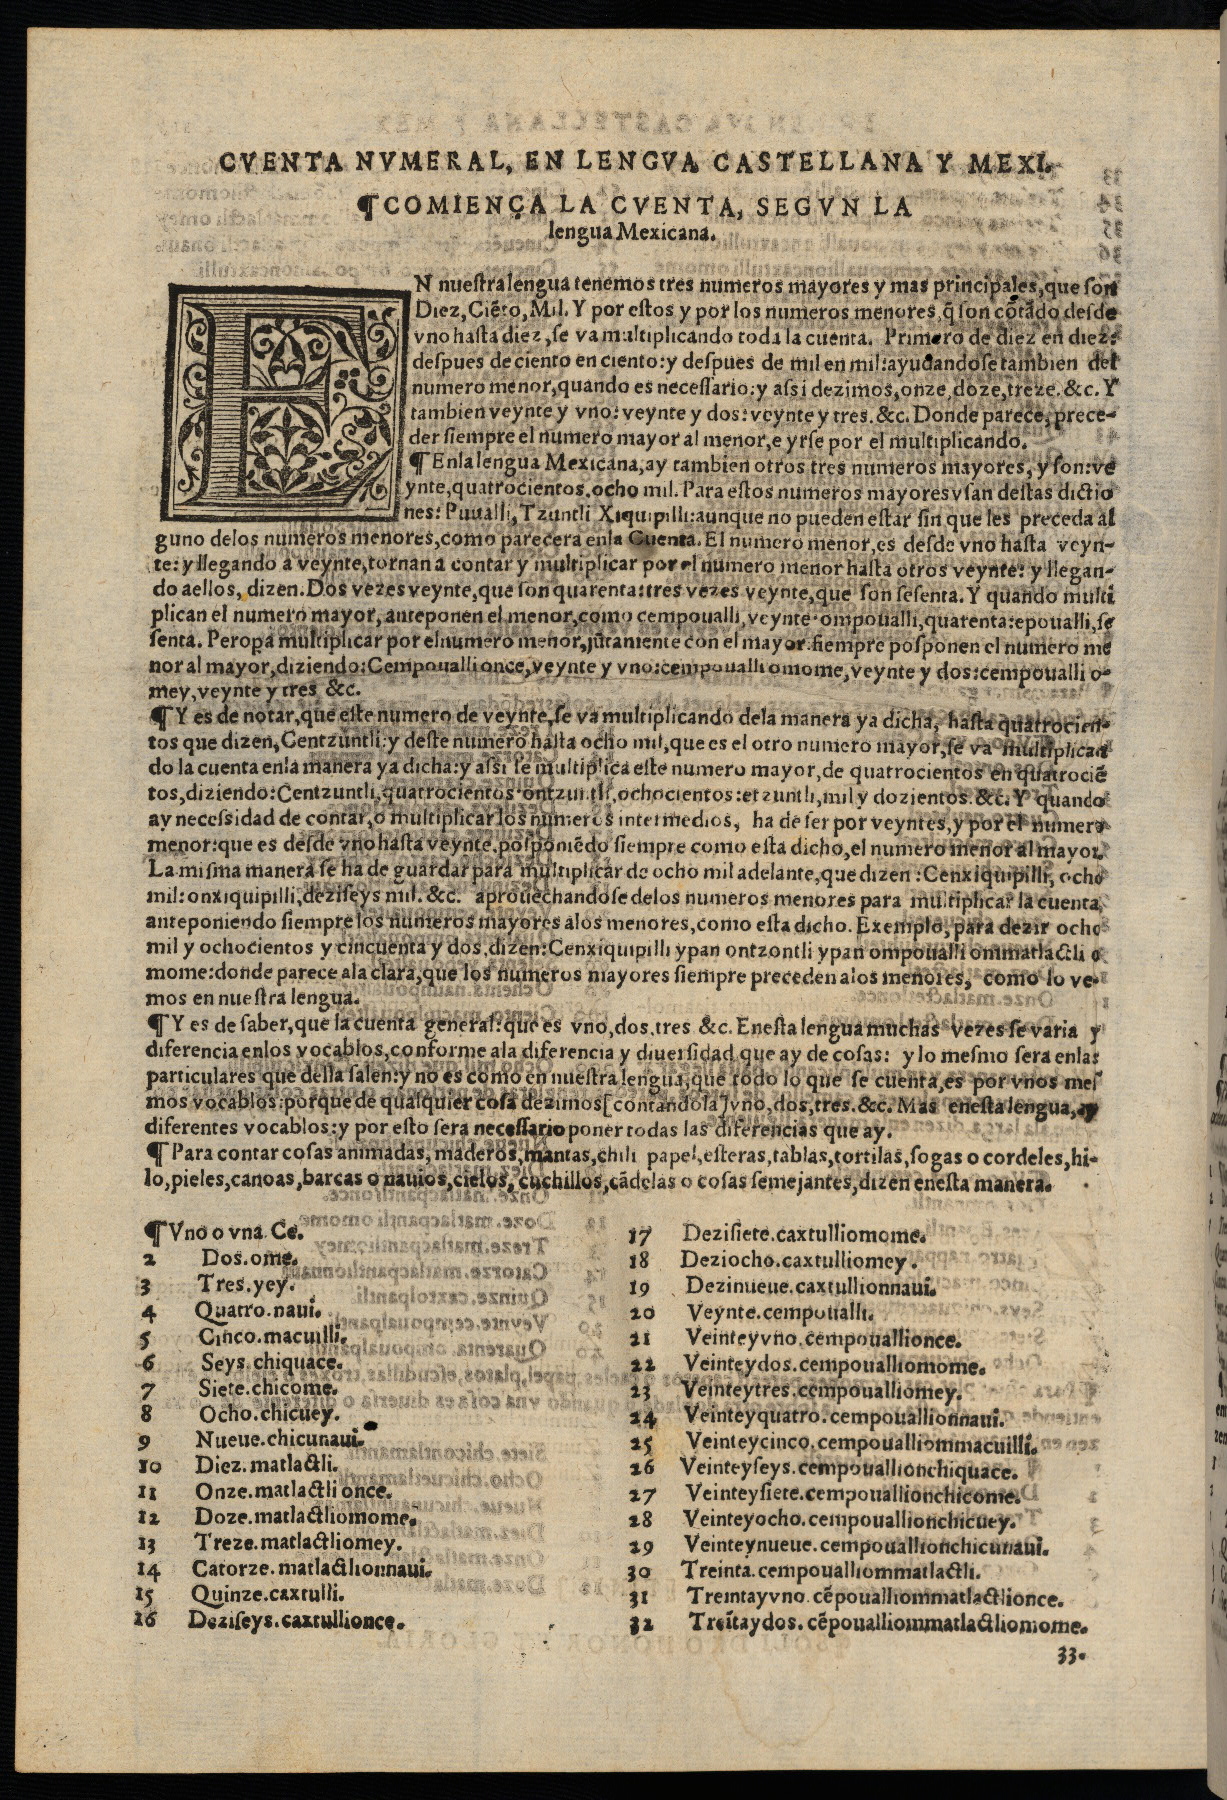 CVENTA NVMERAL, EN LENGVA CASTELLANA Y MEXI.
¶COMIENÇA LA CVENTA, SEGVN LA
lengua Mexicana.
EN nueſtra lengua tenemos tres numeros mayores y mas principales, que ſon
Diez, Ciẽto, Mil. Y por eſtos y por los numeros menores, q̃ ſon cõtãdo deſde
vno haſta diez, ſe va multiplicando toda la cuenta. Primero de diez en diez:
deſpues de ciento en ciento: y deſpues de mil en mil: ayudandoſe tambien del
numero menor, quando es neceſſario: y aſsi dezimos, onze, doze, treze. &c. Y
tambien veynte y vno: veynte y dos: veynte y tres. &c. Donde parece, prece-
der ſiempre el numero mayor al menor, e yrſe por el multiplicando.
¶ Enla lengua Mexicana, ay tambien otros tres numeros mayores, y ſon: ve
ynte, quatrocientos. ocho mil. Para eſtos numeros mayores vſan deſtas dictio
nes: Puualli, Tzuntli Xiquipilli: aunque no pueden eſtar ſin que les preceda al
guno delos numeros menores, como parecera enla Cuenta. El numero menor, es deſde vno haſta veyn-
te: y llegando a veynte, tornan a contar y multiplicar por el numero menor haſta otros veynte: y llegan-
do aellos, dizen. Dos vezes veynte, que ſon quarenta: tres vezes veynte, que ſon ſeſenta. Y quando multi
plican el numero mayor, anteponen el menor, como cempoualli, veynte. ompoualli, quarenta: epoualli, ſe
ſenta. Peropa multiplicar por el numero menor, jũtamente con el mayor. ſiempre poſponen el numero me
nor al mayor, diziendo: Cempoualli once, veynte y vno: cempoualli omome, veynte y dos: cempoualli o-
mey, veynte y tres &c.
¶ Y es de notar, que eſte numero de veynte, ſe va multiplicando dela manera ya dicha, haſta quatrocien-
tos que dizen, Centzuntli: y deſte numero haſta ocho mil, que es el otro numero mayor, ſe va multiplican
do la cuenta enla manera ya dicha: y aſsi ſe multiplica eſte numero mayor, de quatrocientos en quatrociẽ
tos, diziendo: Centzuntli, quatrocientos. ontzuntli, ochocientos: etzuntli, mil y dozientos. &c. Y quando
ay neceſsidad de contar, o multiplicar los numeros intermedios, ha de ſer por veyntes, y por el numero
menor: que es deſde vno haſta veynte. poſponiẽdo ſiempre como eſta dicho, el numero menor al mayor.
La miſma manera ſe ha de guardar para multiplicar de ocho mil adelante, que dizen: Cenxiquipilli, ocho
mil: onxiquipilli, deziſeys mil. &c. aprouechandoſe delos numeros menores para multiplicar la cuenta,
anteponiendo ſiempre los numeros mayores alos menores, como eſta dicho. Exemplo, para dezir ocho
mil y ochocientos y cincuenta y dos, dizen: Cenxiquipilli ypan ontzontli ypan ompoualli ommatlactli o
mome: donde parece ala clara, que los numeros mayores ſiempre preceden alos menores, como lo ve-
mos en nueſtra lengua.
¶ Y es de ſaber, que la cuenta general: que es vno, dos, tres &c. Eneſta lengua muchas vezes ſe varia y
diferencia enlos vocablos, conforme ala diferencia y diuerſidad que ay de coſas: y lo meſmo ſera enlas
particulares que della ſalen: y no es como en nueſtra lengua, que todo lo que ſe cuenta, es por vnos meſ
mos vocablos: porque de qualquier coſa dezimos [contandola] vno, dos, tres. &c. Mas eneſta lengua, ay
diferentes vocablos: y por eſto ſera neceſſario poner todas las diferencias que ay.
¶ Para contar coſas animadas, maderos, mantas, chili papel, eſteras, tablas, tortilas, ſogas o cordeles, hi-
lo, pieles, canoas, barcas o nauios, cielos, cuchillos, cãdelas o coſas ſemejantes, dizen eneſta manera.
¶ Vno o vna. Ce.
2 Dos. ome.
3 Tres. yey.
4 Quatro. naui.
5 Cinco. macuilli.
6 Seys. chiquace.
7 Siete. chicome.
8 Ocho. chicuey.
9 Nueue. chicunaui.
10 Diez. matlactli.
11 Onze. matlactli once.
12 Doze. matlactliomome.
13 Treze. matlactliomey.
14 Catorze. matlactlionnaui.
15 Quinze. caxtulli.
16 Deziſeys. caxtullionce.
17 Deziſiete. caxtulliomome.
18 Deziocho. caxtulliomey.
19 Dezinueue. caxtullionnaui.
20 Veynte. cempoualli.
21 Veinteyvno. cempouallionce.
22 Veinteydos. cempoualliomome.
23 Veinteytres. cempoualliomey.
24 Veinteyquatro. cempouallionnaui.
25 Veinteycinco. cempoualliommacuilli.
26 Veinteyſeys. cempouallionchiquace.
27 Veinteyſiete. cempouallionchicome.
28 Veinteyocho. cempouallionchicuey.
29 Veinteynueue. cempouallionchicunaui.
30 Treinta. cempoualliommatlactli.
31 Treintayvno. cẽpoualliommatlactlionce.
32 Treĩtaydos. cẽpoualliommatlactliomome.
33.